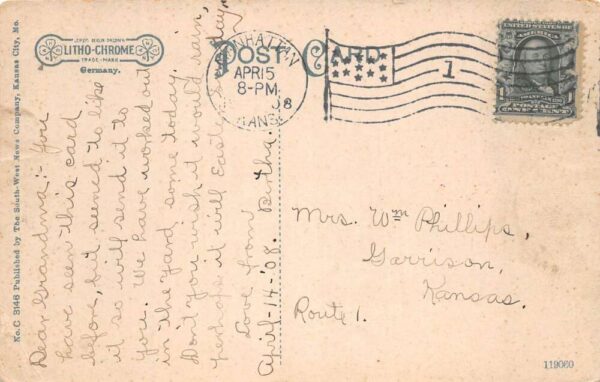 No. C 3146 Published by The South-West News Company, Kansas City, Mo.
LITHO-CHROME
TRADE-MARK
Germany.
POST CARD
MANHATTAN
APR 15
8-PM
KANS.
1
Dear Grandma:- You
have seen this card
before, but seemed to like
it so will send it to
you. We have worked out
in the yard some today.
Don't you wish it would rain,
perhaps it will Easter Sunday.
Love from Bertha.
April-14-'08.
Mrs. Wm Phillips,
Garrison,
Kansas.
Route 1.
119060